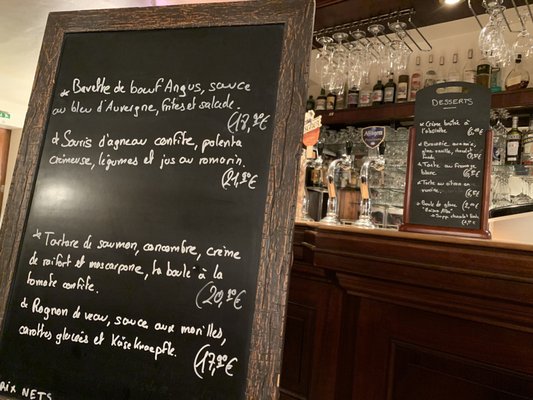 * Bavette de bœuf Angus, sauce
au bleu d'Auvergne, frites et salade.
(17,90€
* Souris d'agneau confite, polenta
crémeuse, légumes et jus au romarin.
(21,90€
* Tartare de saumon, concombre, crème
de raifort et mascarpone, la boule à la
tomate confite.
(20,90€
* Rognon de veau, sauce aux morilles,
carottes glacées et Käseknoepfle.
(17,90€
PRIX NETS
DESSERTS
* Crème brûlée à
l'absinthe
* Tarte au fromage
blanc
* Tarte au citron
* Boule de glace